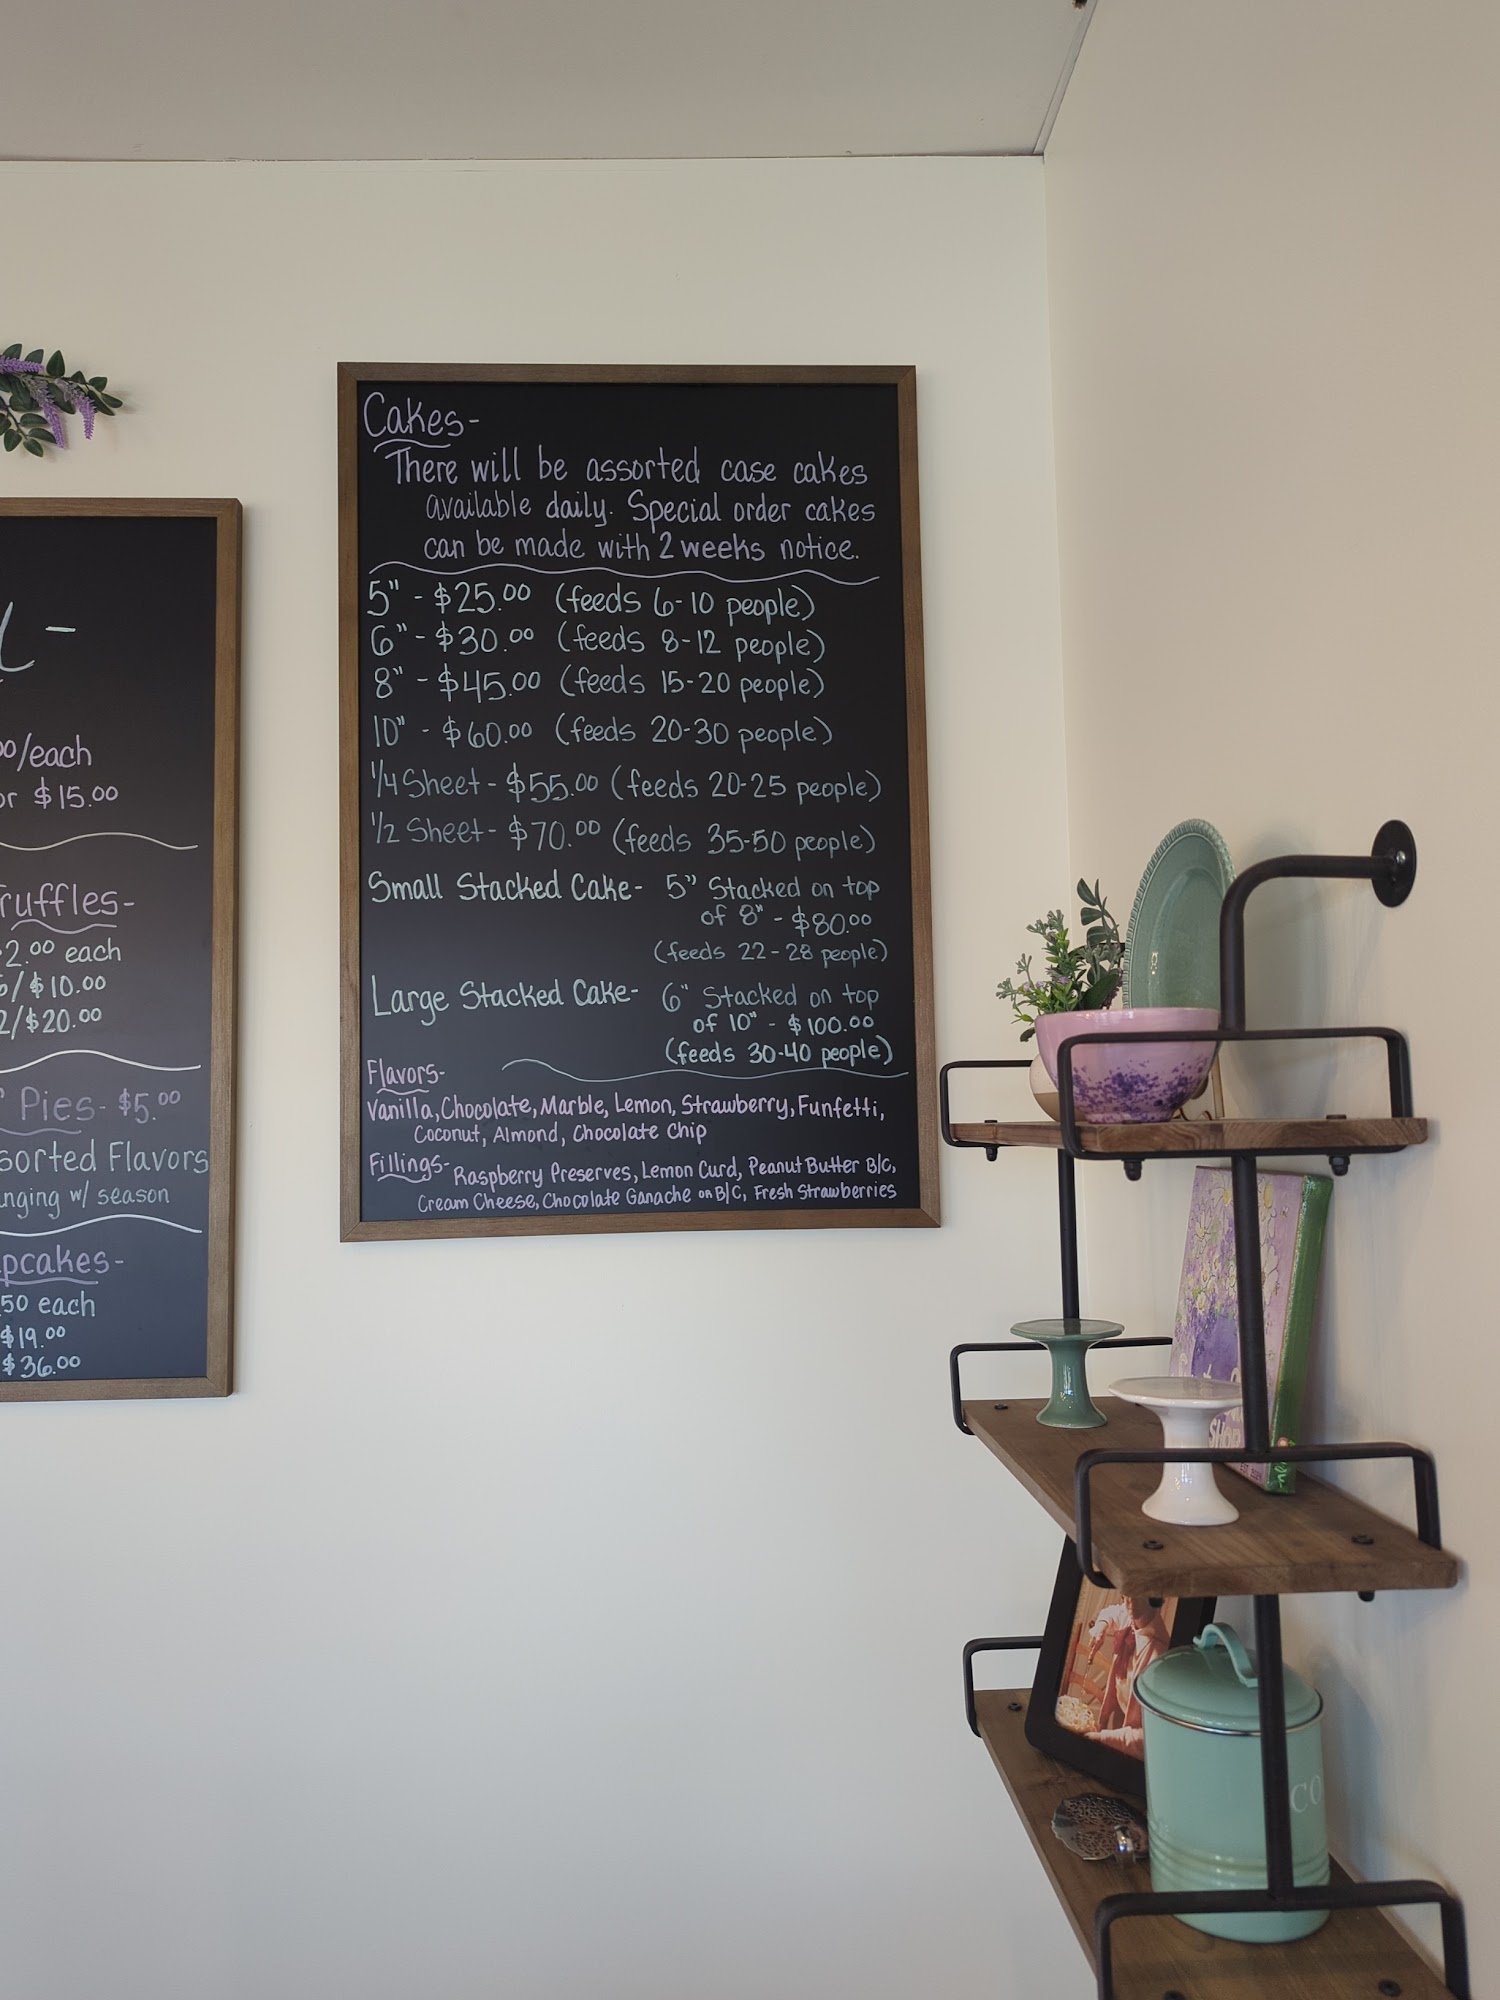 -
00/each
or $15.00
Truffles-
2.00 each
6/$10.00
2/$20.00
" Pies- $5.00
sorted Flavors
anging w/ season
pcakes-
.50 each
$19.00
$36.00
Cakes-
There will be assorted case cakes
available daily. Special order cakes
can be made with 2 weeks notice.
5" - $25.00 (feeds 6-10 people)
6" - $30.00 (feeds 8-12 people)
8" - $45.00 (feeds 15-20 people)
10" - $60.00 (feeds 20-30 people)
1/4 Sheet - $55.00 (feeds 20-25 people)
1/2 Sheet - $70.00 (feeds 35-50 people)
Small Stacked Cake- 5" Stacked on top
of 8" - $80.00
(feeds 22-28 people)
Large Stacked Cake- 6" Stacked on top
of 10" - $100.00
(feeds 30-40 people)
Flavors-
Vanilla, Chocolate, Marble, Lemon, Strawberry, Funfetti,
Coconut, Almond, Chocolate Chip
Fillings- Raspberry Preserves, Lemon Curd, Peanut Butter B/C,
Cream Cheese, Chocolate Ganache or B/C, Fresh Strawberries
CO